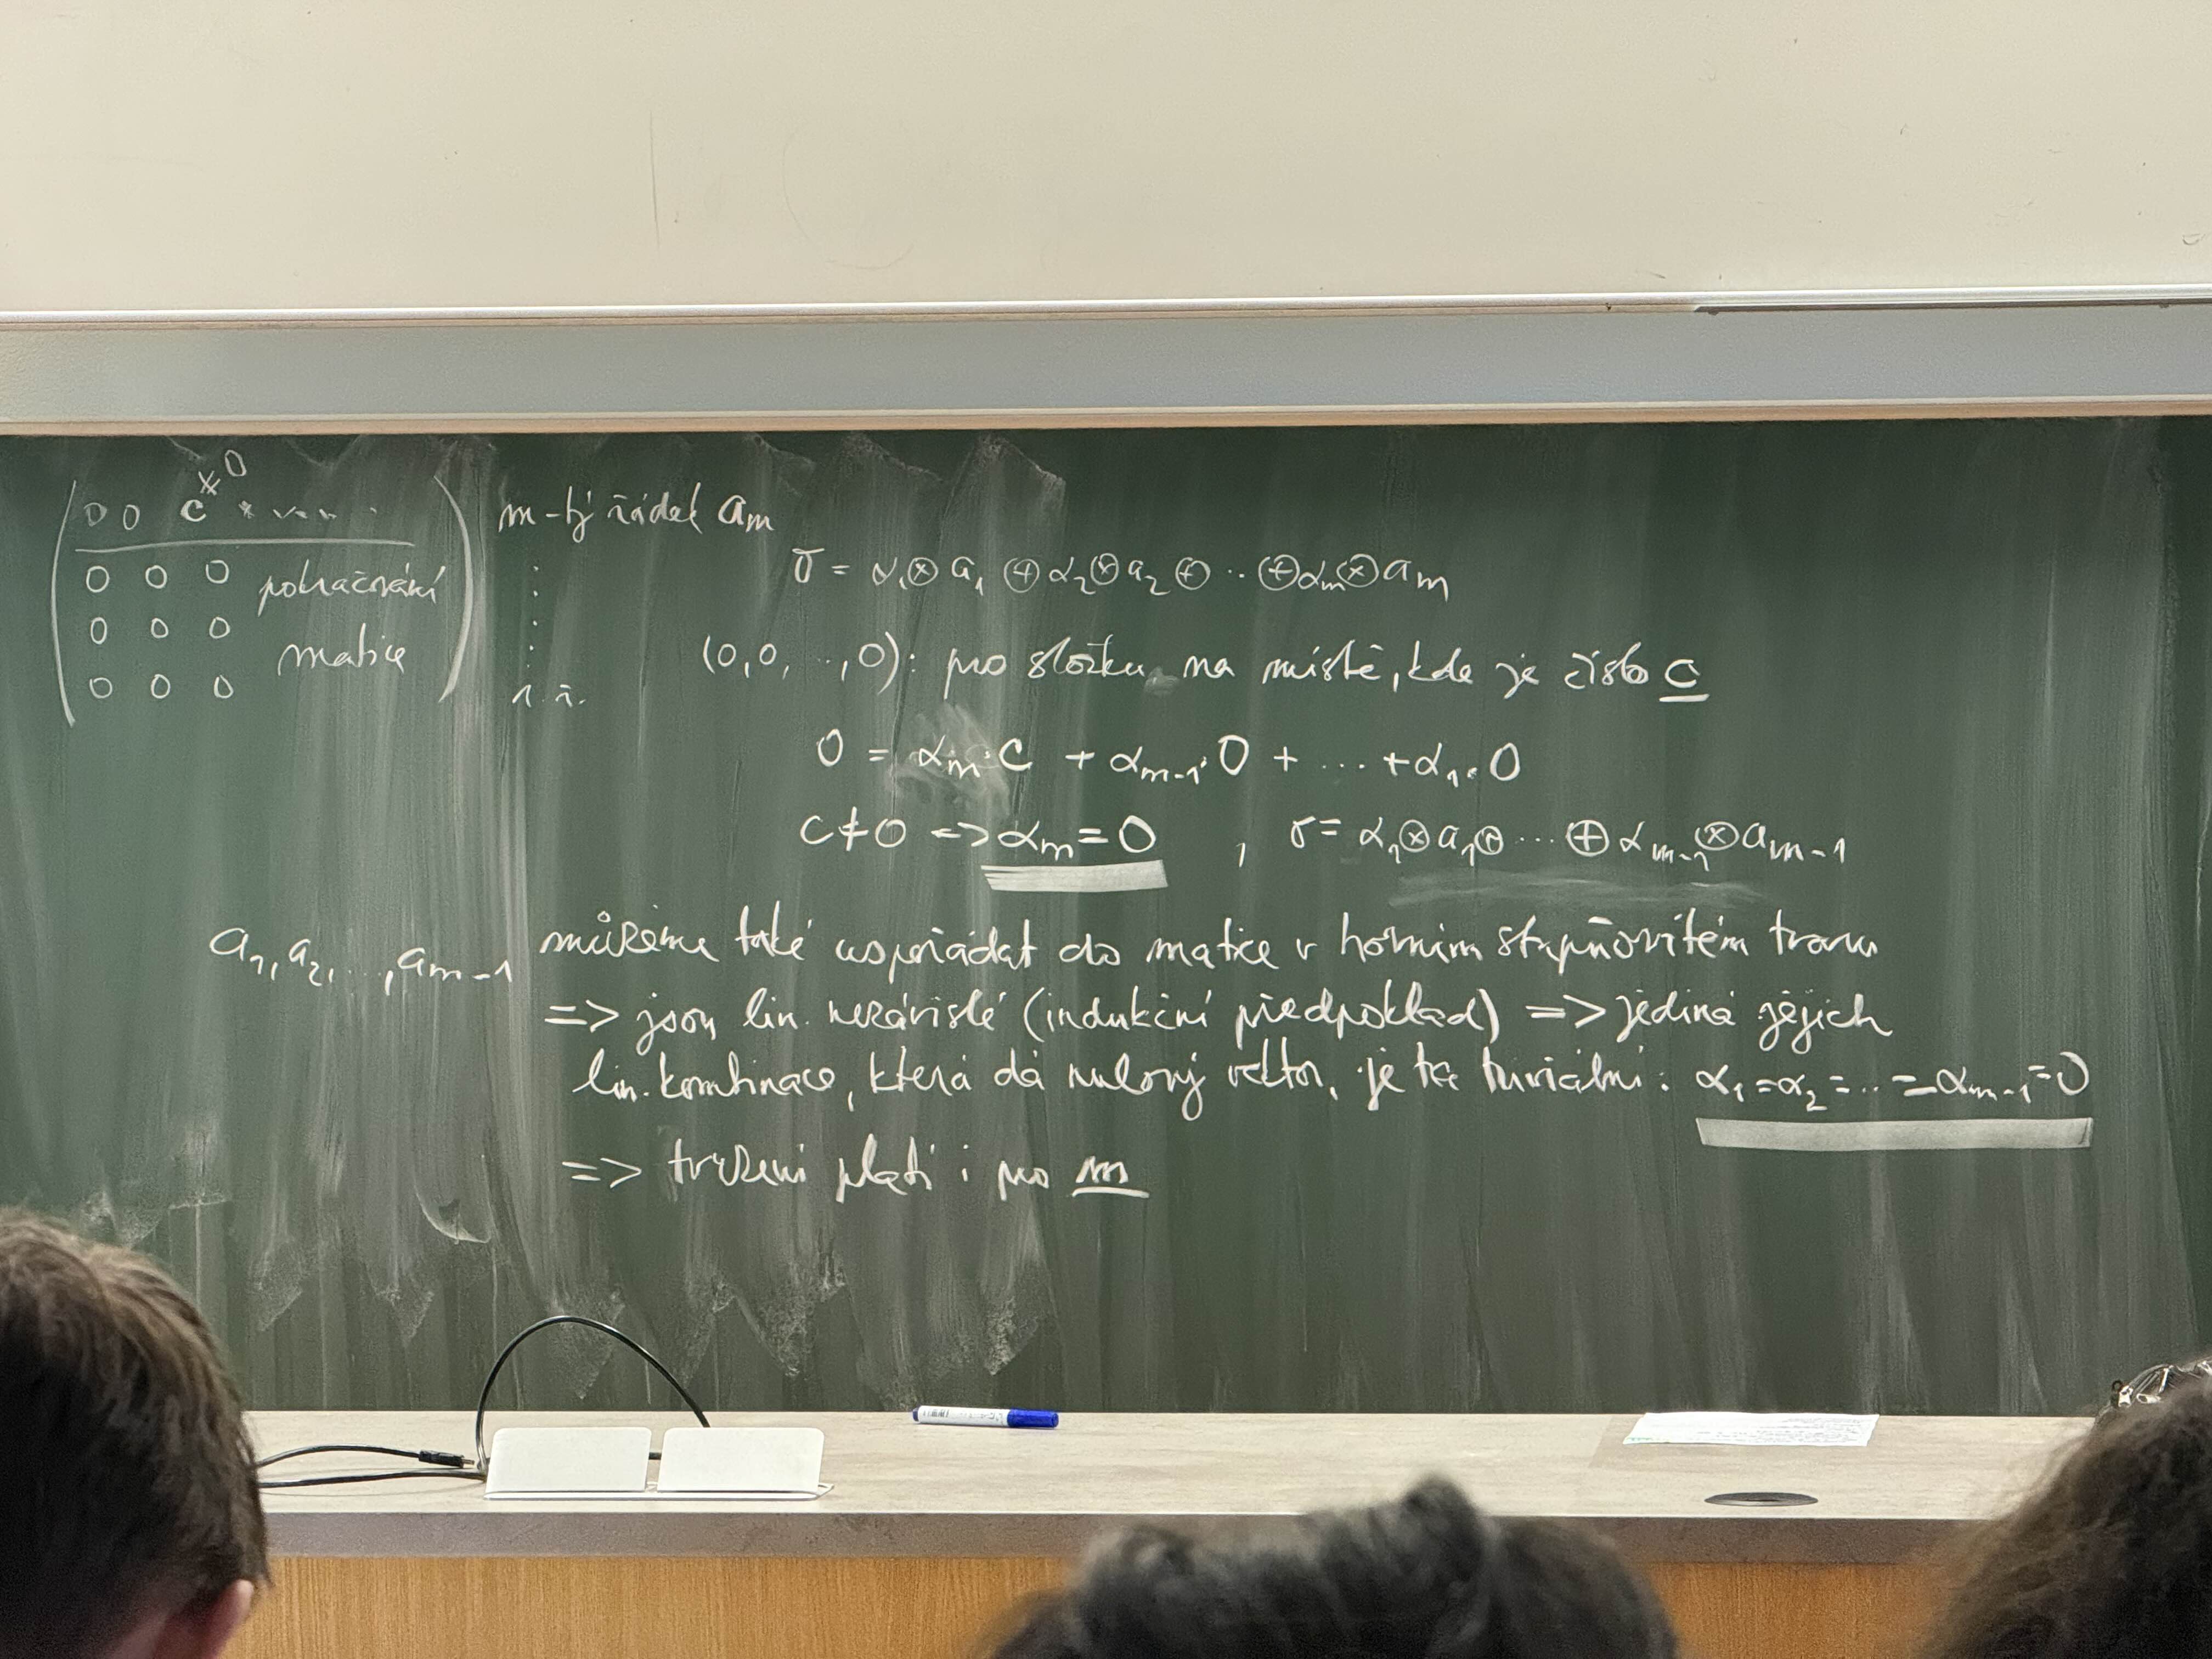 ≠0
0 0 c * . . . .
m-tý řádek am
0 0 0 pokračování
0 0 0
matice
0 0 0
1. ř.
σ = α1⊗a1 ⊕ α2⊗a2 ⊕ .. ⊕ αm⊗am
(0,0, .., 0): pro složku na místě, kde je číslo c
0 = αm·c + αm-1·0 + ... + α1·0
c≠0 => αm=0 , σ = α1⊗a1⊕ ... ⊕ αm-1⊗am-1
a1, a2, ..., am-1 můžeme také uspořádat do matice v horním stupňovitém tvaru
=> jsou lin. nezávislé (indukční předpoklad) => jediná jejich
lin. kombinace, která dá nulový vektor, je ta triviální: α1=α2=..=αm-1=0
=> tvrzení platí i pro m